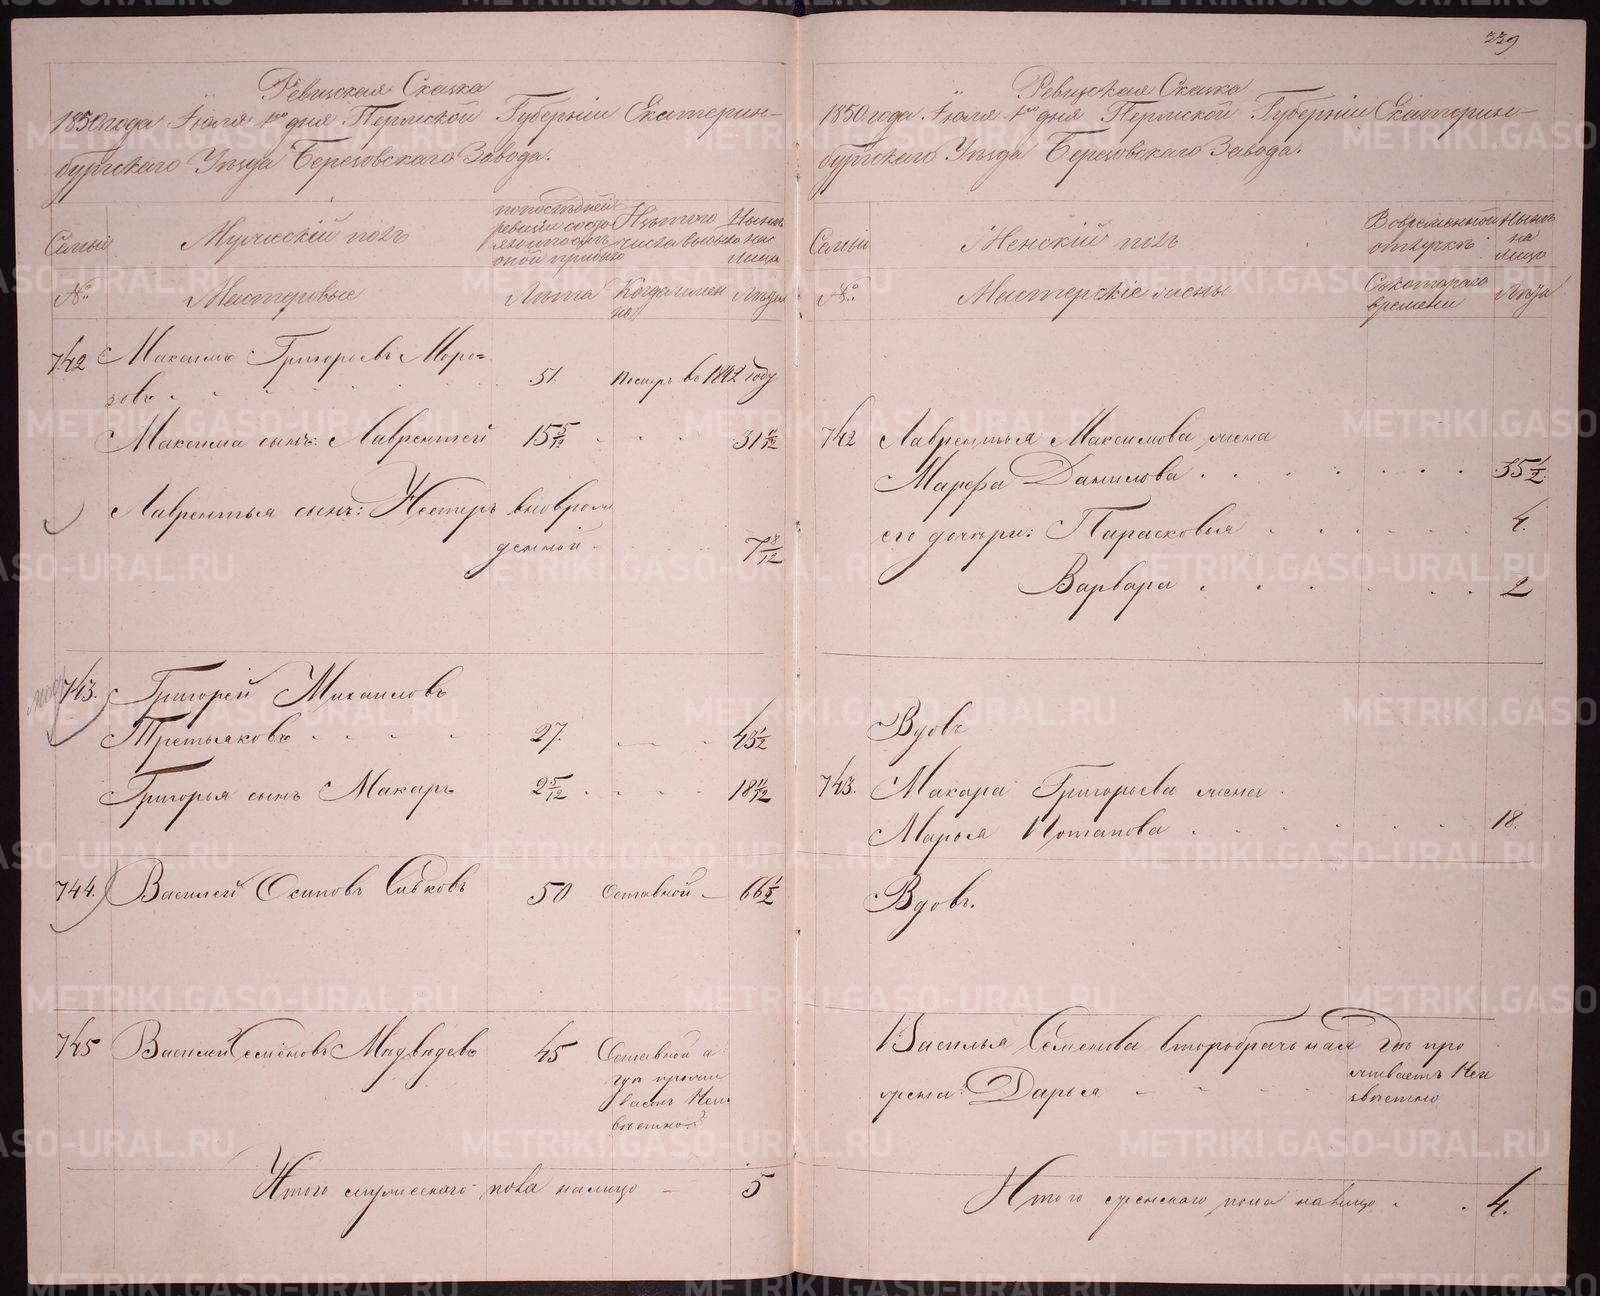 229
Ревизская Сказка
1850 года Іюля 1го дня Пермской Губерніи Екатерин-
бургскаго Уѣзда Березовскаго Завода.
Семьи
Мужескій полъ
по последней
ревизіи состо
яло и после
оной прибыло
Изъ того
числа выбыло
Нынѣ
на
лицо
№
Мастеровые
Лѣта
Когда имен
но
Лѣта
742
Максимъ Григорьевъ Моро=
зовъ
51.
Померъ въ 1842 году
Максима сынъ: Лаврентей
15 5/12
31 11/12
Лаврентья сынъ: Нестеръ вновьрож
денной
7 8/12
743.
Григорей Михаиловъ
Третьяковъ
27.
43 1/2
Григорья сынъ Макаръ
2 5/12
18 11/12
744.
Василей Осиповъ Сивковъ
50
Отставной
66 1/2
745
Василей Семеновъ Мадвидевъ
45
Отставной а
где прожи
ваетъ Неиз
вѣстно
Итого мужескаго пола налицо
5
Ревизская Сказка
1850 года Іюля 1го дня Пермской Губерніи Екатерин-
бургскаго Уѣзда Березовскаго Завода.
Семьи
Женскій полъ
Во временной
отлучкѣ
Нынѣ
на
лицо
№
Мастерскіе жены
Съ котораго
времени
Лѣта
742
Лаврентья Максимова жена
Марфа Данилова
35 1/2
его дочери: Парасковья
4.
Варвара
2
Вдовъ
743.
Макара Григорьева жена
Марья Потапова
18.
Вдовъ.
Василья Семенова второбрачьная
жена: Дарья
Где про
живаетъ Неи
звѣстно
Итого женскаго пола налицо
4.
METRIKI.GASO-URAL.RU